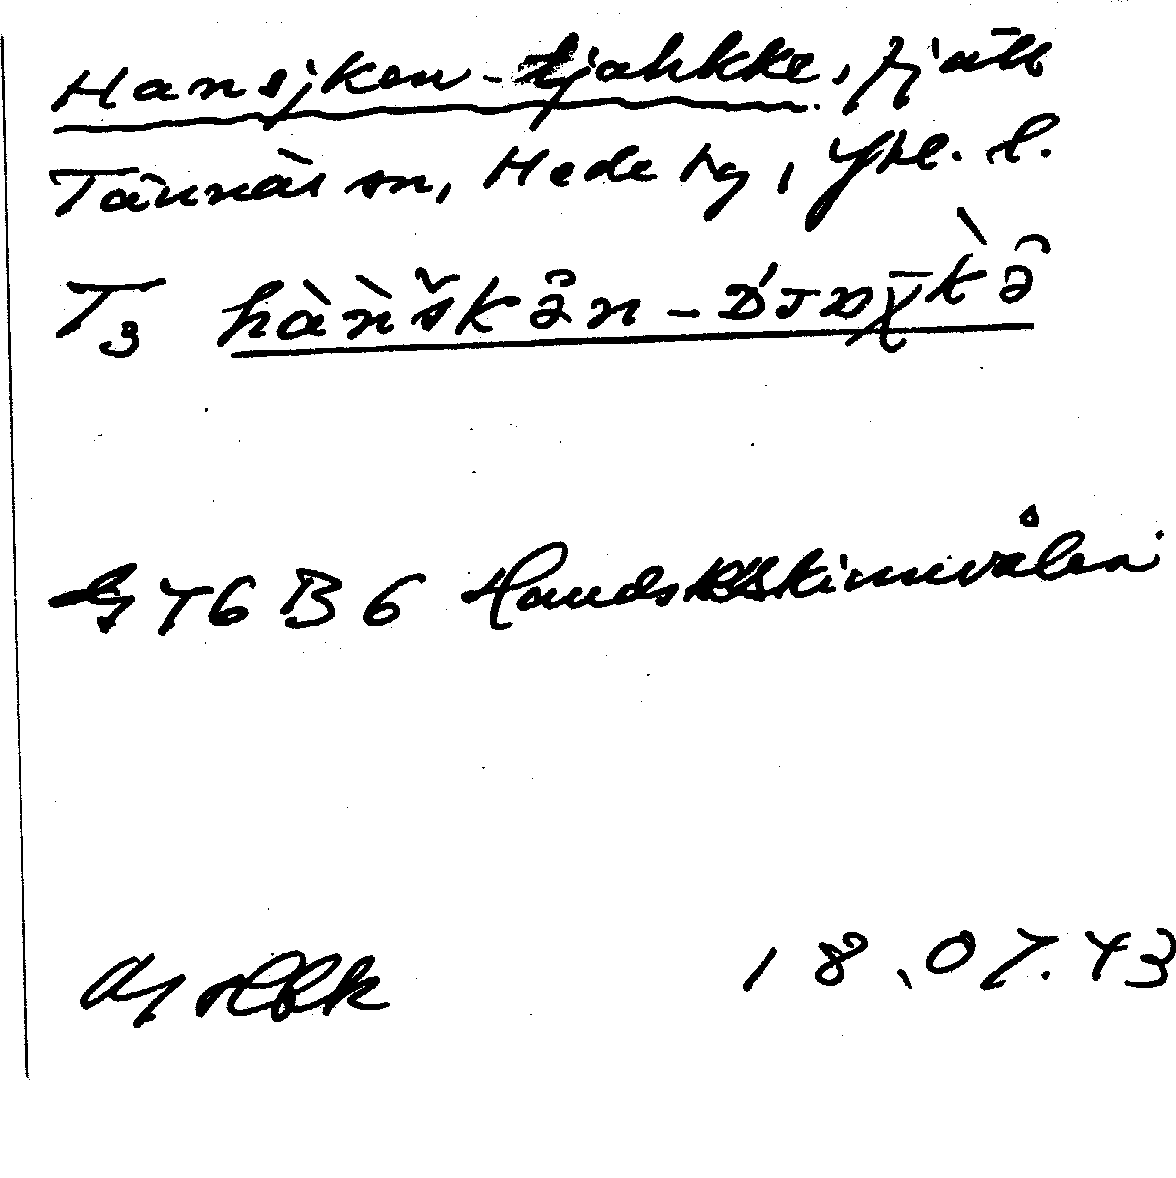 Hansjken-tjahkke, fjäll
Tännäs sn, Hede tg, Jtl. l.
T3 hànˋškə̂n-D́ᴊɒχ̄kˋə̂
G 46 B 6 Handskskinnvålen
18.07.43